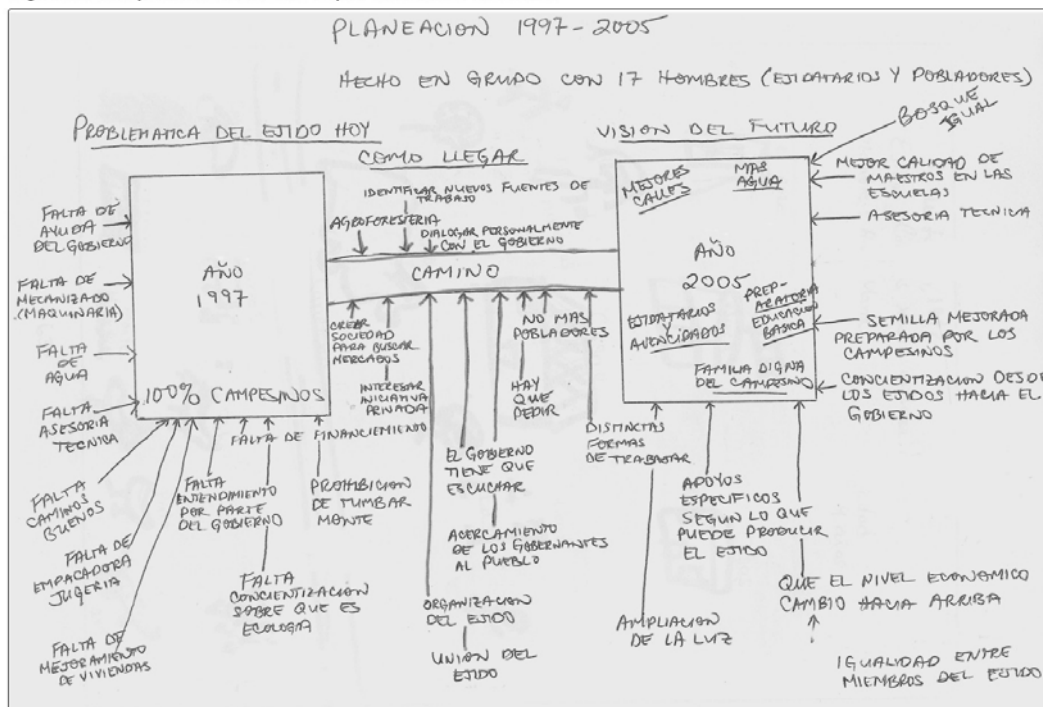 PLANEACION 1997-2005
HECHO EN GRUPO CON 17 HOMBRES (EJIDATARIOS Y POBLADORES)
PROBLEMATICA DEL EJIDO HOY
FALTA DE
AYUDA
DEL GOBIERNO
FALTA DE
MECANIZADO
(MAQUINARIA)
FALTA
DE
AGUA
FALTA
ASESORIA
TECNICA
FALTA
CAMINOS
BUENOS
FALTA DE
EMPACADORA
JUGERIA
FALTA DE
MEJORAMIENTO
DE VIVIENDAS
AÑO
1997
100% CAMPESINOS
FALTA
ENTENDIMIENTO
POR PARTE
DEL GOBIERNO
FALTA DE FINANCIEMIENTO
FALTA
CONCIENTIZACION
SOBRE QUE ES
ECOLOGIA
PROHIBICION
DE TUMBAR
MONTE
COMO LLEGAR
IDENTIFICAR NUEVOS FUENTES DE
TRABAJO
AGROFORESTERIA
DIALOGAR PERSONALMENTE
CON EL GOBIERNO
CAMINO
CREAR
SOCIEDAD
PARA BUSCAR
MERCADOS
INTERESAR
INICIATIVA
PRIVADA
ORGANIZACION
DEL EJIDO
UNION DEL
EJIDO
EL GOBIERNO
TIENE QUE
ESCUCHAR
ACERCAMIENTO
DE LOS GOBERNANTES
AL PUEBLO
HAY
QUE
PEDIR
NO MAS
POBLADORES
DISTINCTAS
FORMAS
DE TRABAJAR
VISION DEL FUTURO
MEJORES
CALLES
MAS
AGUA
AÑO
2005
EJIDATARIOS
Y
AVENCIDADOS
PREP-
ARATORIA
EDUCACION
BASICA
FAMILIA DIGNA
DEL CAMPESINO
BOSQUE
IGUAL
MEJOR CALIDAD DE
MAESTROS EN LAS
ESCUELAS
ASESORIA TECNICA
SEMILLA MEJORADA
PREPARADA POR LOS
CAMPESINOS
CONCIENTIZACION DESDE
LOS EJIDOS HACIA EL
GOBIERNO
AMPLIACION
DE LA LUZ
APOYOS
ESPECIFICOS
SEGUN LO QUE
PUEDE PRODUCIR
EL EJIDO
QUE EL NIVEL ECONOMICO
CAMBIO HACIA ARRIBA
IGUALIDAD ENTRE
MIEMBROS DEL EJIDO